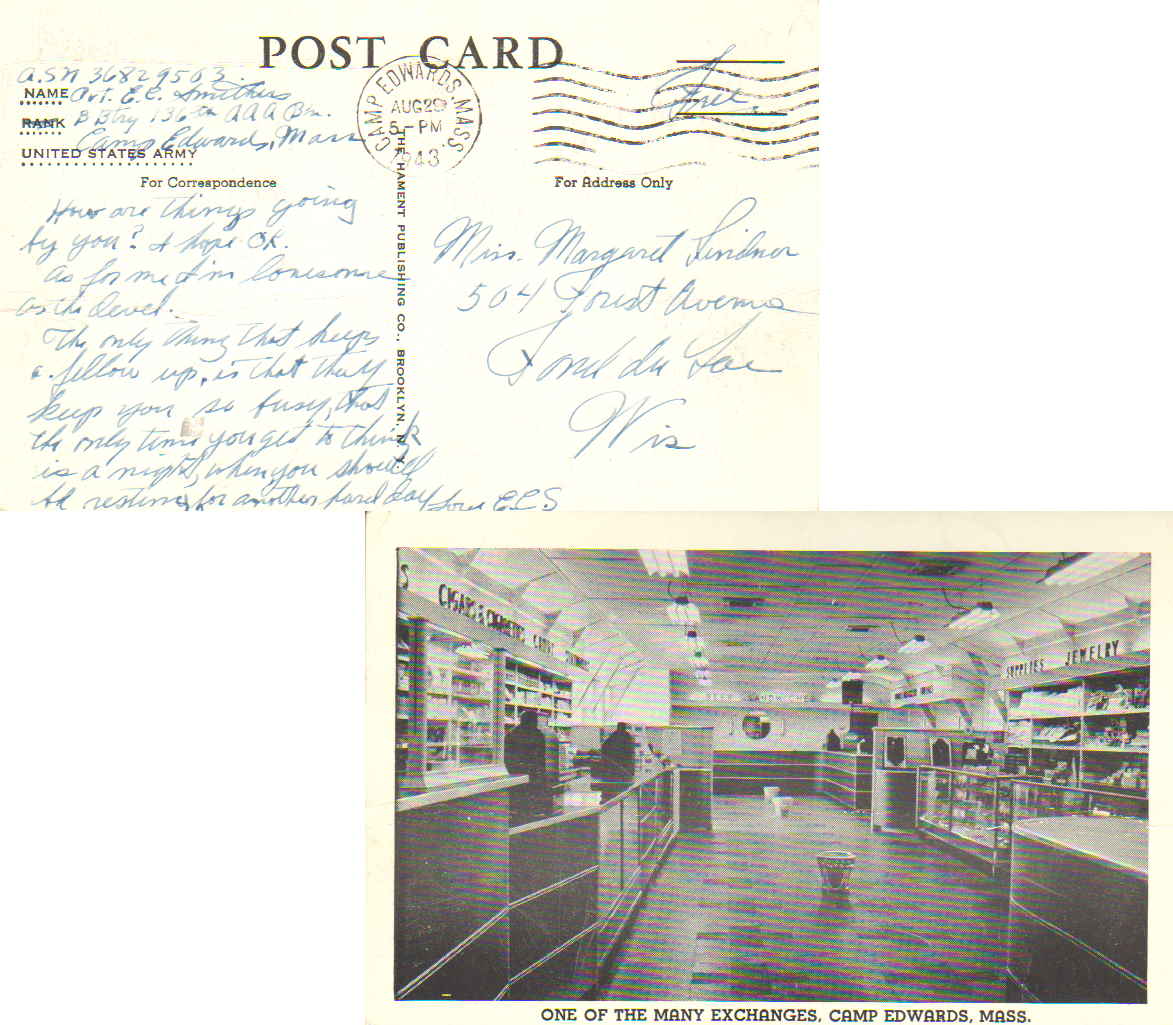 POST CARD
A.S.N 36829503.
NAME Pvt. E.C. Smithers
RANK B Btry 136th AAA Bn.
Camp Edwards, Mass
UNITED STATES ARMY
CAMP EDWARDS, MASS.
AUG 29
5-PM
1943
Free
For Correspondence
For Address Only
How are things going
by you? I hope OK.
as for me I'm lonesome
as the devel.
The only thing that keeps
a fellow up, is that they
keep you so busy, that
the only time you get to think
is a night, when you should
be resting for another hard day
Love E.C.S
THE HAMENT PUBLISHING CO., BROOKLYN, N.Y.
Miss. Margaret Lindner
504 Forest Avenue
Fond du Lac
Wis
S
CIGARS & CIGARETTES CANDY
SUPPLIES JEWELRY
BEER SANDWICHES
ONE OF THE MANY EXCHANGES, CAMP EDWARDS, MASS.